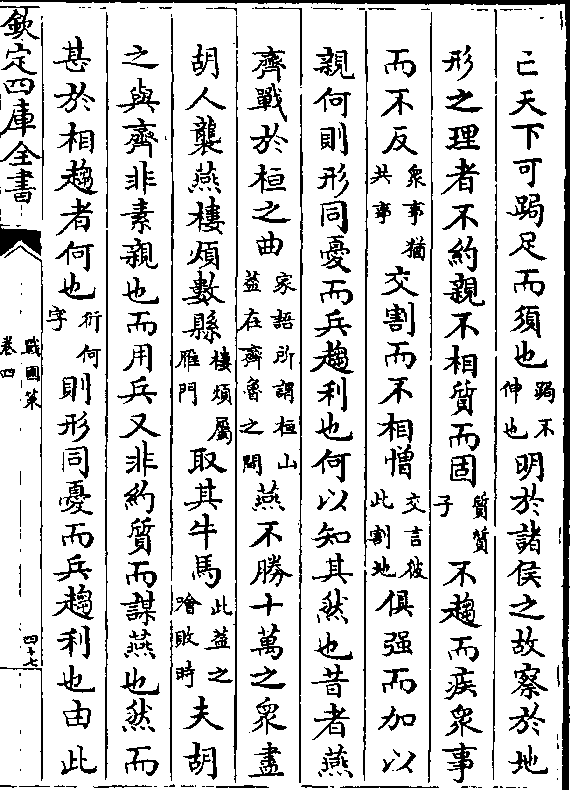 亡天下可跼足而須也跼不伸也明於諸侯之故察於地
形之理者不約親不相質而固質質子不趨而疾衆事
而不反衆事猶共事交割而不相憎交言彼此割地俱强而加以
親何則形同憂而兵趨利也何以知其然也昔者燕
齊戰於桓之曲家語所謂桓山葢在齊魯之間燕不勝十萬之衆盡
胡人襲燕樓煩數縣樓煩屬雁門取其牛馬此葢之噲敗時夫胡
之與齊非素親也而用兵又非約質而謀燕也然而
甚於相趨者何也衍何字則形同憂而兵趨利也由此
欽定四庫全書
戰國策
卷四
四十七